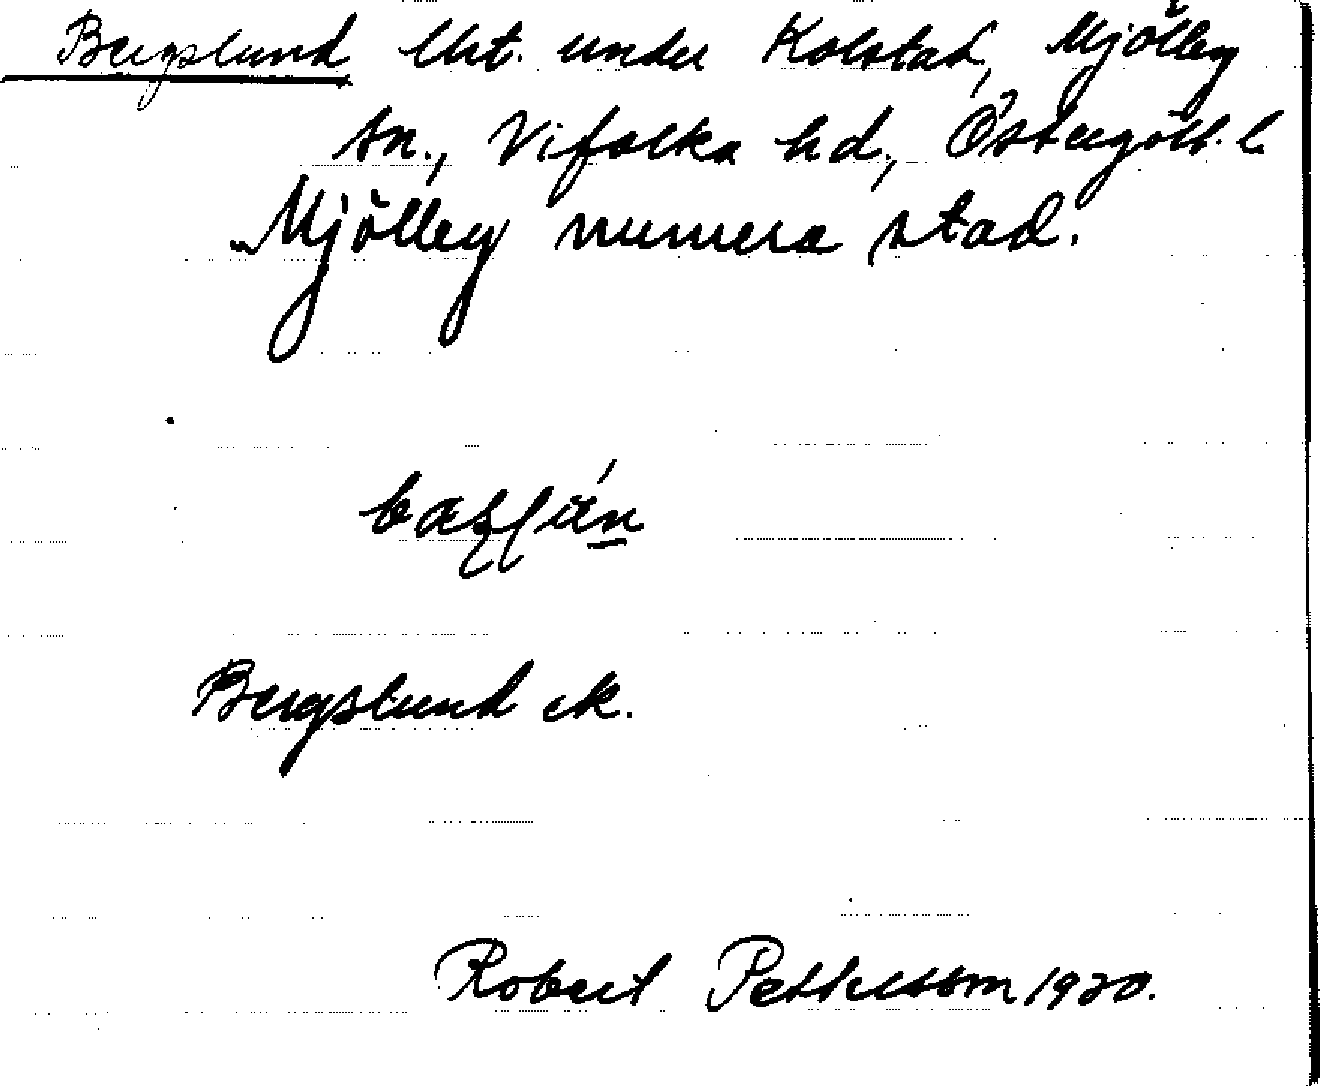 Bergslund lht. under Kolstad, Mjölby
sn., Vifolka hd, Östergötl. l.
Mjölby numera stad.
Bergslund ek.
Robert Pettersson 1920.